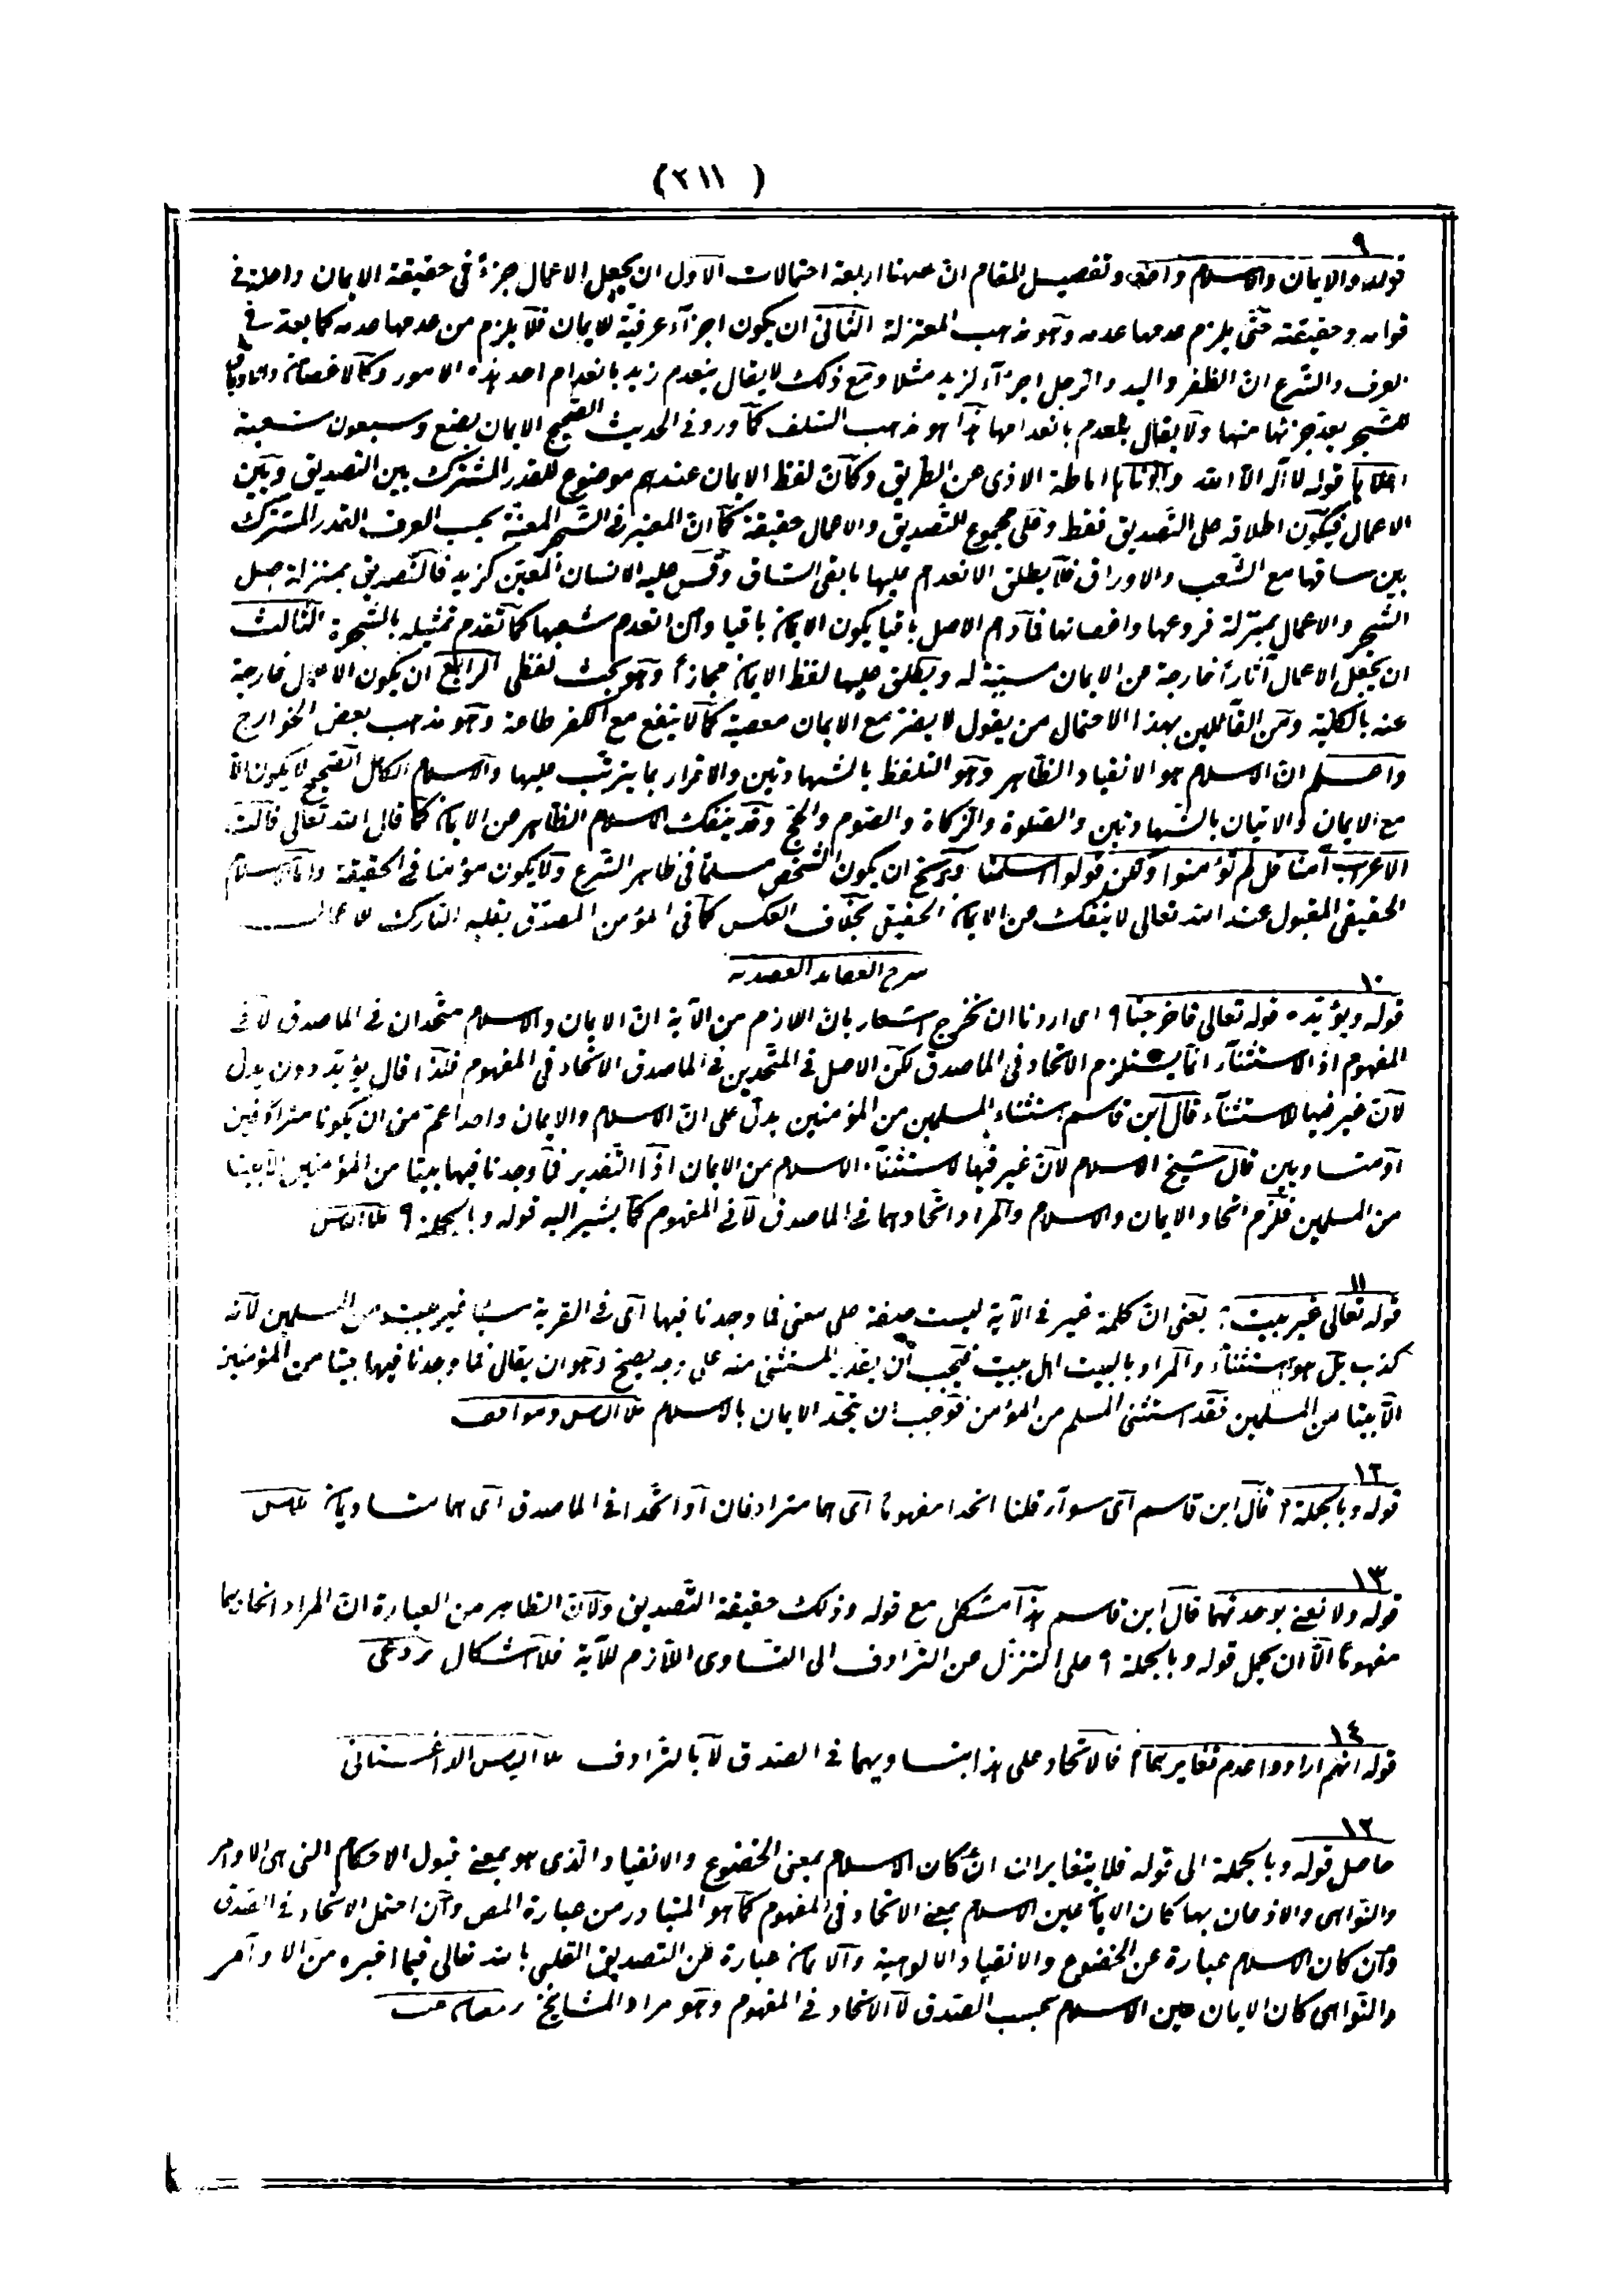 (٢١١)
٩
قوله والايمان والاسلام واحد وتفصيل المقام انّ ههنا اربعة احتمالات الاول ان يجعل الاعمال جزءً فى حقيقة الايمان داخلة فى
قوامه وحقيقته حتّى يلزم عدمها عدمه وهو مذهب المعتزلة الثانى ان يكون اجزآء عرفيّة للايمان فلا يلزم من عدمها عدمه كما يعد فى
العرف والشّرع انّ الظفر واليد والرجل اجزآء لزيد مثلا ومع ذلك لا يقال ينعدم زيد بانعدام احد هذه الامور وكالاغصان والاوراق
للشجر يعدّ جزئها منها ولا يقال ينعدم بانعدامها هذا هو مذهب السّلف كما ورد فى الحديث الصّحيح الايمان بضع وسبعون شعبة
اعلاها قوله لا آله الاّ الله وادناها اماطة الاذى عن الطريق وكان لفظ الايمان عندهم موضوع للقدر المشترك بين التصديق وبين
الاعمال فيكون اطلاقه على التّصديق فقط وعلى مجموع التّصديق والاعمال حقيقة كما انّ المعتبر فى الشّجر المعيّنة بحسب العرف القدر المشترك
بين ساقها مع الشّعب والاوراق فلا يطلق الانعدام عليها ما بقى السّاق وقس عليه الانسان المعيّن كزيد فالتّصديق بمنزلة اصل
الشّجر والاعمال بمنزلة فروعها واغصانها فما دام الاصل باقيا يكون الايمان باقيا وان انعدم شعبها كما تقدم تمثيله بالشّجرة الثالث
ان يجعل الاعمال آثاراً خارجة من الايمان مسببة له ويطلق عليها لفظ الايمان مجازاً وهو بحث لفظى الرابع ان يكون الاعمال خارجة
عنه بالكليّة ومن القائلين بهذا الاحتمال من يقول لا يضرّ مع الايمان معصية كما لا ينفع مع الكفر طاعة وهو مذهب بعض الخوارج
واعلم انّ الاسلام هو الانقياد الظاهر وهو التلفظ بالشهادتين والاقرار بما يترتّب عليها والاسلام الكامل الصّحيح لا يكون الاّ
مع الايمان والاتيان بالشّهادتين والصّلوة والزّكاة والصّوم والحجّ وقد ينفكّ الاسلام الظّاهر من الايمان كما قال الله تعالى قالت
الاعراب آمنّا قل لم تؤمنوا ولكن قولوا اسلمنا ويصحّ ان يكون الشّخص مسلماً فى ظاهر الشّرع ولا يكون مؤمنا فى الحقيقة وامّا الاسلام
الحقيقى المقبول عند الله تعالى لا ينفكّ من الايمان الحقيقى بخلاف العكس كما فى المؤمن المصدّق بقلبه التارك للاعمال
شرح العقائد العضدية
١٠
قوله ويؤيّده قوله تعالى فاخرجنا ٩ اى اردنا ان نخرج اشعار بان اللازم من الآية انّ الايمان والاسلام متّحدان فى الماصدق لا فى
المفهوم اذ الاستثنآء انّما يستلزم الاتحاد فى الماصدق لكن الاصل فى المتّحدين فى الماصدق الاتّحاد فى المفهوم فلذا قال يؤيّد دون يدلّ
لانّ غير فيها للاستثنآء قال ابن قاسم استثناء المسلمين من المؤمنين يدلّ على انّ الاسلام والايمان واحد اعمّ من ان يكونا مترادفين
او متساويين قال شيخ الاسلام لانّ غير فيها لاستثنآء الاسلام من الايمان اذا التّقدير فما وجدنا فيها بيتا من المؤمنين الاّ بيتا
من المسلمين فلزم اتّحاد الايمان والاسلام والمراد اتّحادهما فى الماصدق لا فى المفهوم كما يشير اليه قوله وبالجملة ٩ ملا الياس
١١
قوله تعالى غير بيت: يعنى انّ كلمة غير فى الآية ليست صفة على معنى فما وجدنا فيها اى فى القرية شيئا غير بيت من المسلمين لانّه
كذب بل هو استثنآء والمراد بالبيت اهل بيت فيجب ان يقدر المستثنى منه على وجه يصحّ وهو ان يقال فما وجدنا فيها بيتا من المؤمنين
الاّ بيتا من المسلمين فقد استثنى المسلم من المؤمن فوجب ان يتّحد الايمان بالاسلام ملا الياس ومواقف
١٢
قوله وبالجملة ٩ قال ابن قاسم اى سوآء قلنا اتحدا مفهوماً اى هما مترادفان او اتّحدا فى الماصدق اى هما متساويان
١٣
قوله ولا نعنى بوحدتهما قال ابن قاسم هذا مشكل مع قوله وذلك حقيقة التّصديق ولانّ الظاهر من العبارة انّ المراد اتحادهما
مفهوماً الاّ ان يحمل قوله وبالجملة ٩ على التنزل من الترادف الى التّساوى اللازم للآية فلا اشكال
١٤
قوله انهم ارادوا عدم تغايرهما ٩ فالاتحاد على هذا بتساويهما فى الصّدق لا بالترادف ملا الياس الداغستانى
١٢
حاصل قوله وبالجملة الى قوله فلا يتغايران انّ كان الاسلام بمعنى الخضوع والانقياد الّذى هو بمعنى قبول الاحكام التى هى الاوامر
والنّواهى والاذعان بها كان الايمان عين الاسلام بمعنى الاتحاد فى المفهوم كما هو المتبادر من عبارة المص وان احتمل الاتّحاد فى الصّدق
وان كان الاسلام عبارة عن الخضوع والانقياد لالوهية والايمان عبارة عن التصديق القلبى بالله تعالى فيما اخبره من الاوآمر
والنّواهى كان الايمان عين الاسلام بحسب الصّدق لا الاتحاد فى المفهوم وهو مراد المشايخ